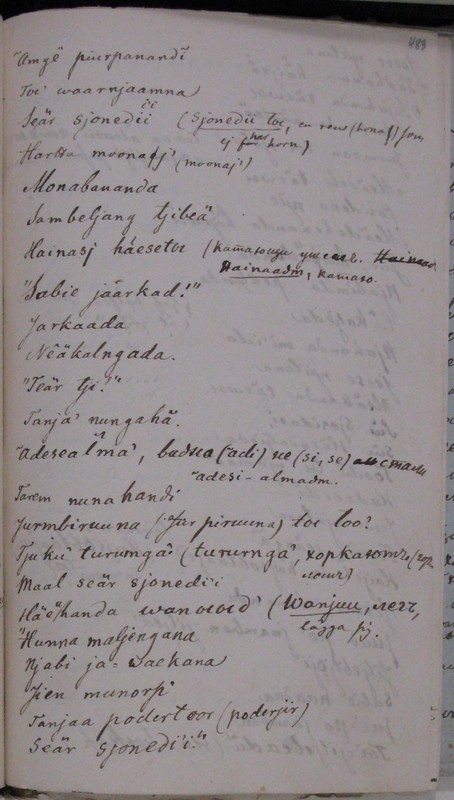 483
"Amgê puurpanandĩ
Toé waarnjaamna
Seär sjonedii (Sjonedii toe, en ren (hona) som
ej har horn)
Hartta moonasj' (moonaj')
Monabananda
Sambeljang tjibeä
Hainasj háesetoe (
Hainaadm, камаю.
"Sabie jäärkad!"
Jarkaada
Nêäkalngada.
"Teär tji!"
Tanja' nungahä.
"Adesealma', (adi) ne (si, se)
"adesi-almadm.
Tarem nuna handi
Jurmbiruuna (Jar piruuna) toe loo?
Tjuku' turumgâ' (tururngâ',
Maal seär sjonedi'i
Häehanda wanowed' (Wanjuu, лечь,
lägga sig.
"Hunna maljengana
Njabi ja=waekana
Jien munorp'
Tanjaa podertoor (poderjir)
Seär sjonedi'i."